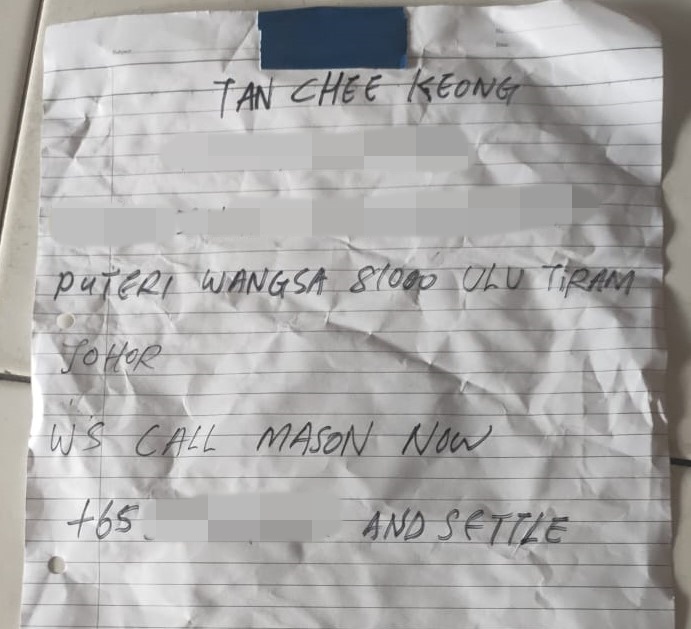 TAN CHEE KEONG
PUTERI WANGSA 81000 ULU TIRAM
JOHOR
WS CALL MASON NOW
+65 AND SETTLE